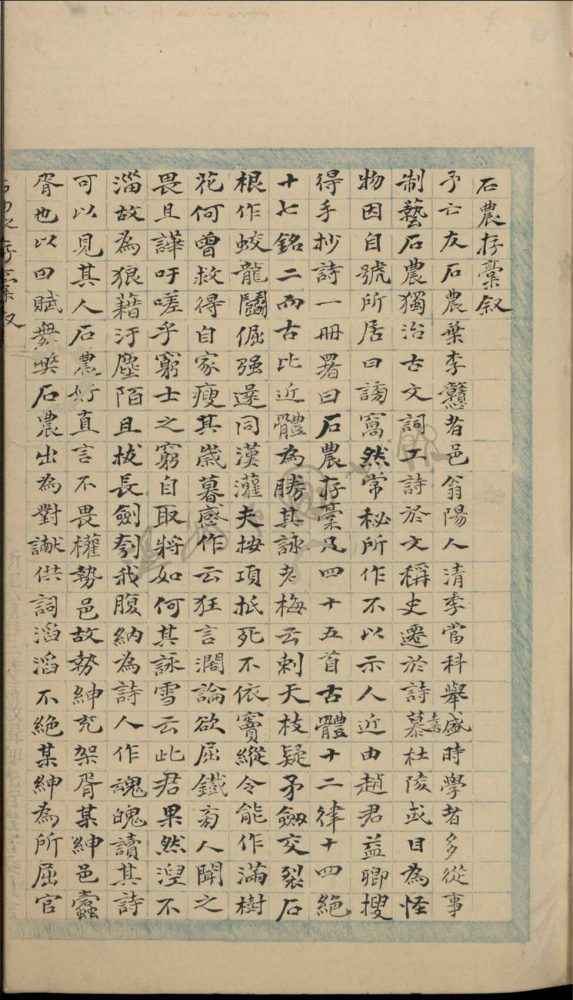 石農存稾叙
予亡友石農葉李戇者邑翁陽人清季當科舉盛時學者多從事
制藝石農獨治古文詞工詩於文稱史遷於詩慕嘉杜陵或目為怪
物因自號所居曰譎窩然常秘所作不以示人近由趙君益卿搜
得手抄詩一冊署曰石農存稾凡四十五首古體十二律十四絕
十七銘二而古比近體為勝其詠老梅云刺天枝疑矛劔交裂石
根作蛟龍鬬倔强還同漢灌夫按項抵死不依竇縱令能作滿樹
花何曾救得自家瘦其歲暮感作云狂言濶論欲屈鐵旁人聞之
畏且譁吁嗟乎窮士之窮自取將如何其詠雪云此君果然湼不
淄故為狼藉汙塵陌且拔長劍刳我腹納為詩人作魂魄讀其詩
可以見其人石農好直言不畏權勢邑故勢紳充架胥某紳邑蠹
胥也以田賦舞弊石農出為對讞供詞滔滔不絕某紳為所屈官